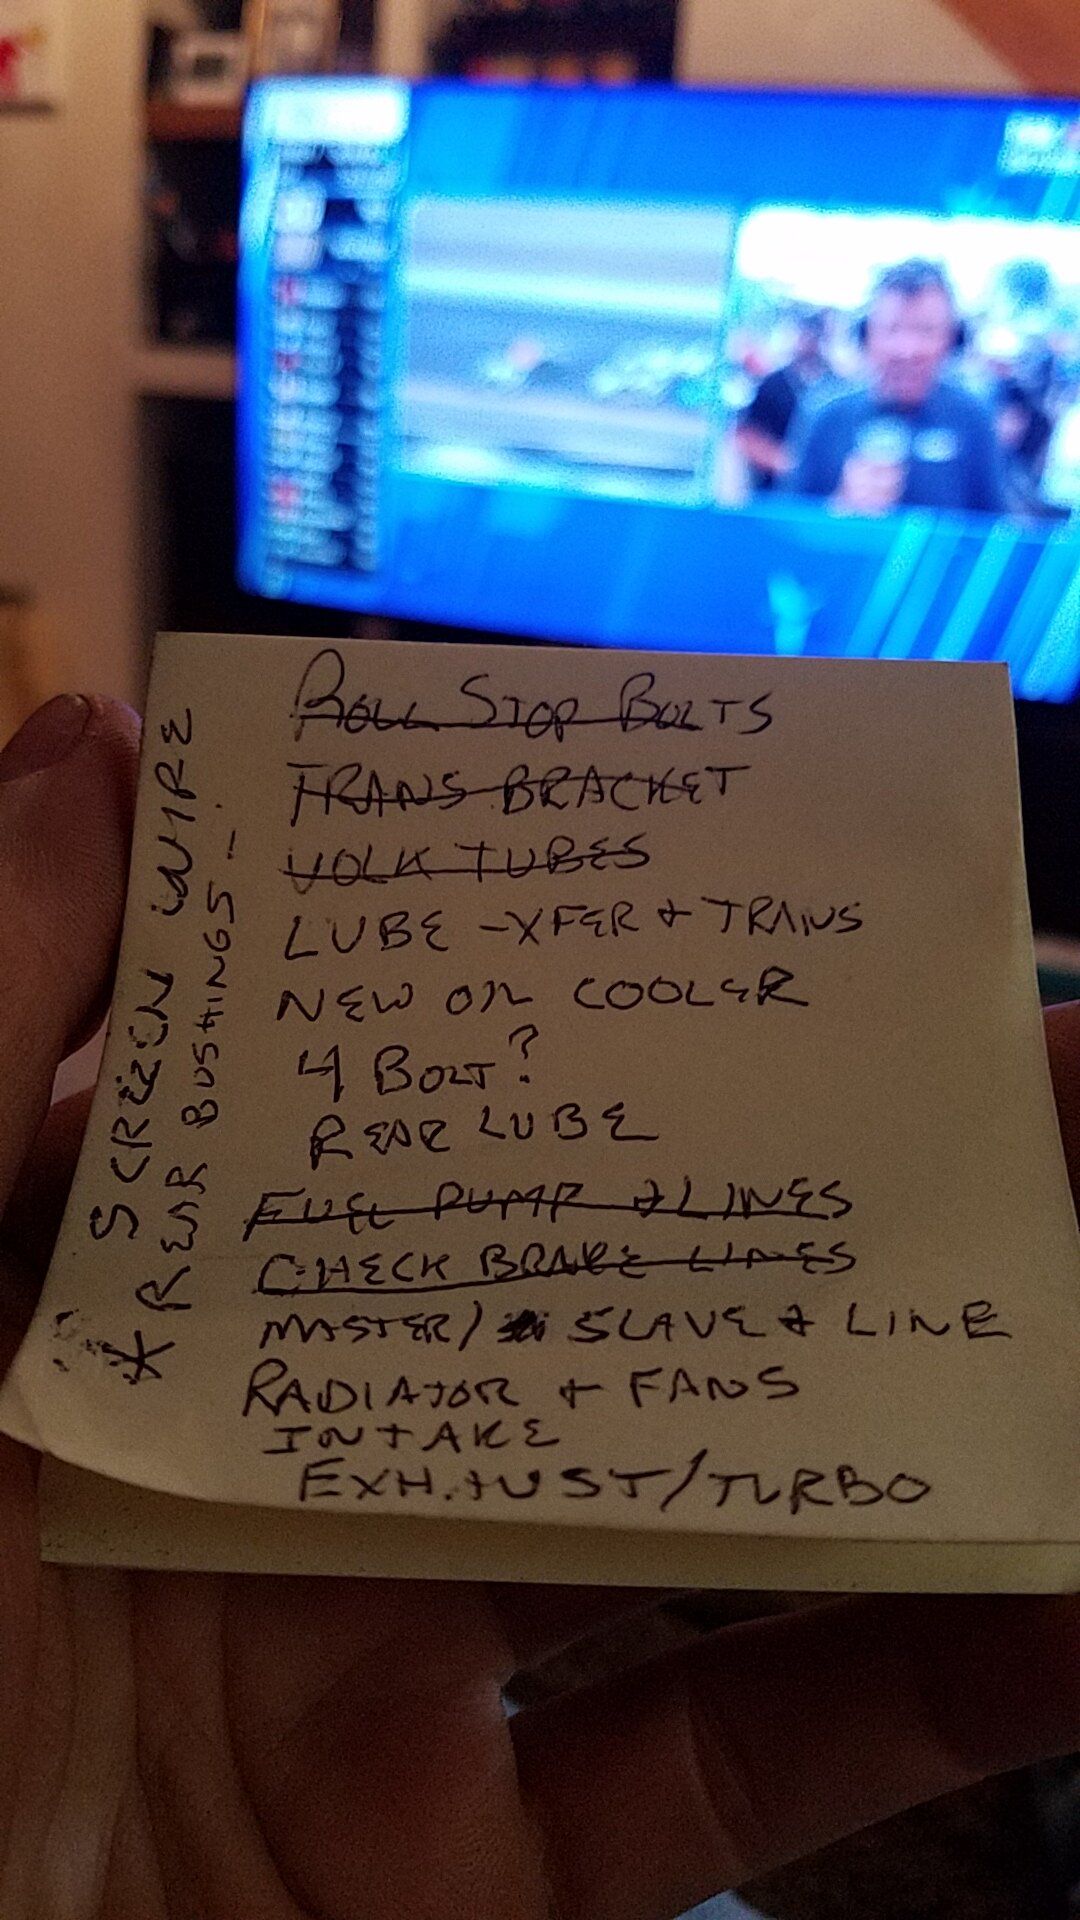 ROLL STOP BOLTS
TRANS BRACKET
VOLK TUBES
LUBE - XFER + TRANS
NEW OIL COOLER
4 BOLT?
REAR LUBE
FUEL PUMP & LINES
CHECK BRAKE LINES
MASTER/ SLAVE & LINE
RADIATOR + FANS
INTAKE
EXHAUST/TURBO
SCREEN
* REAR BUSHINGS -